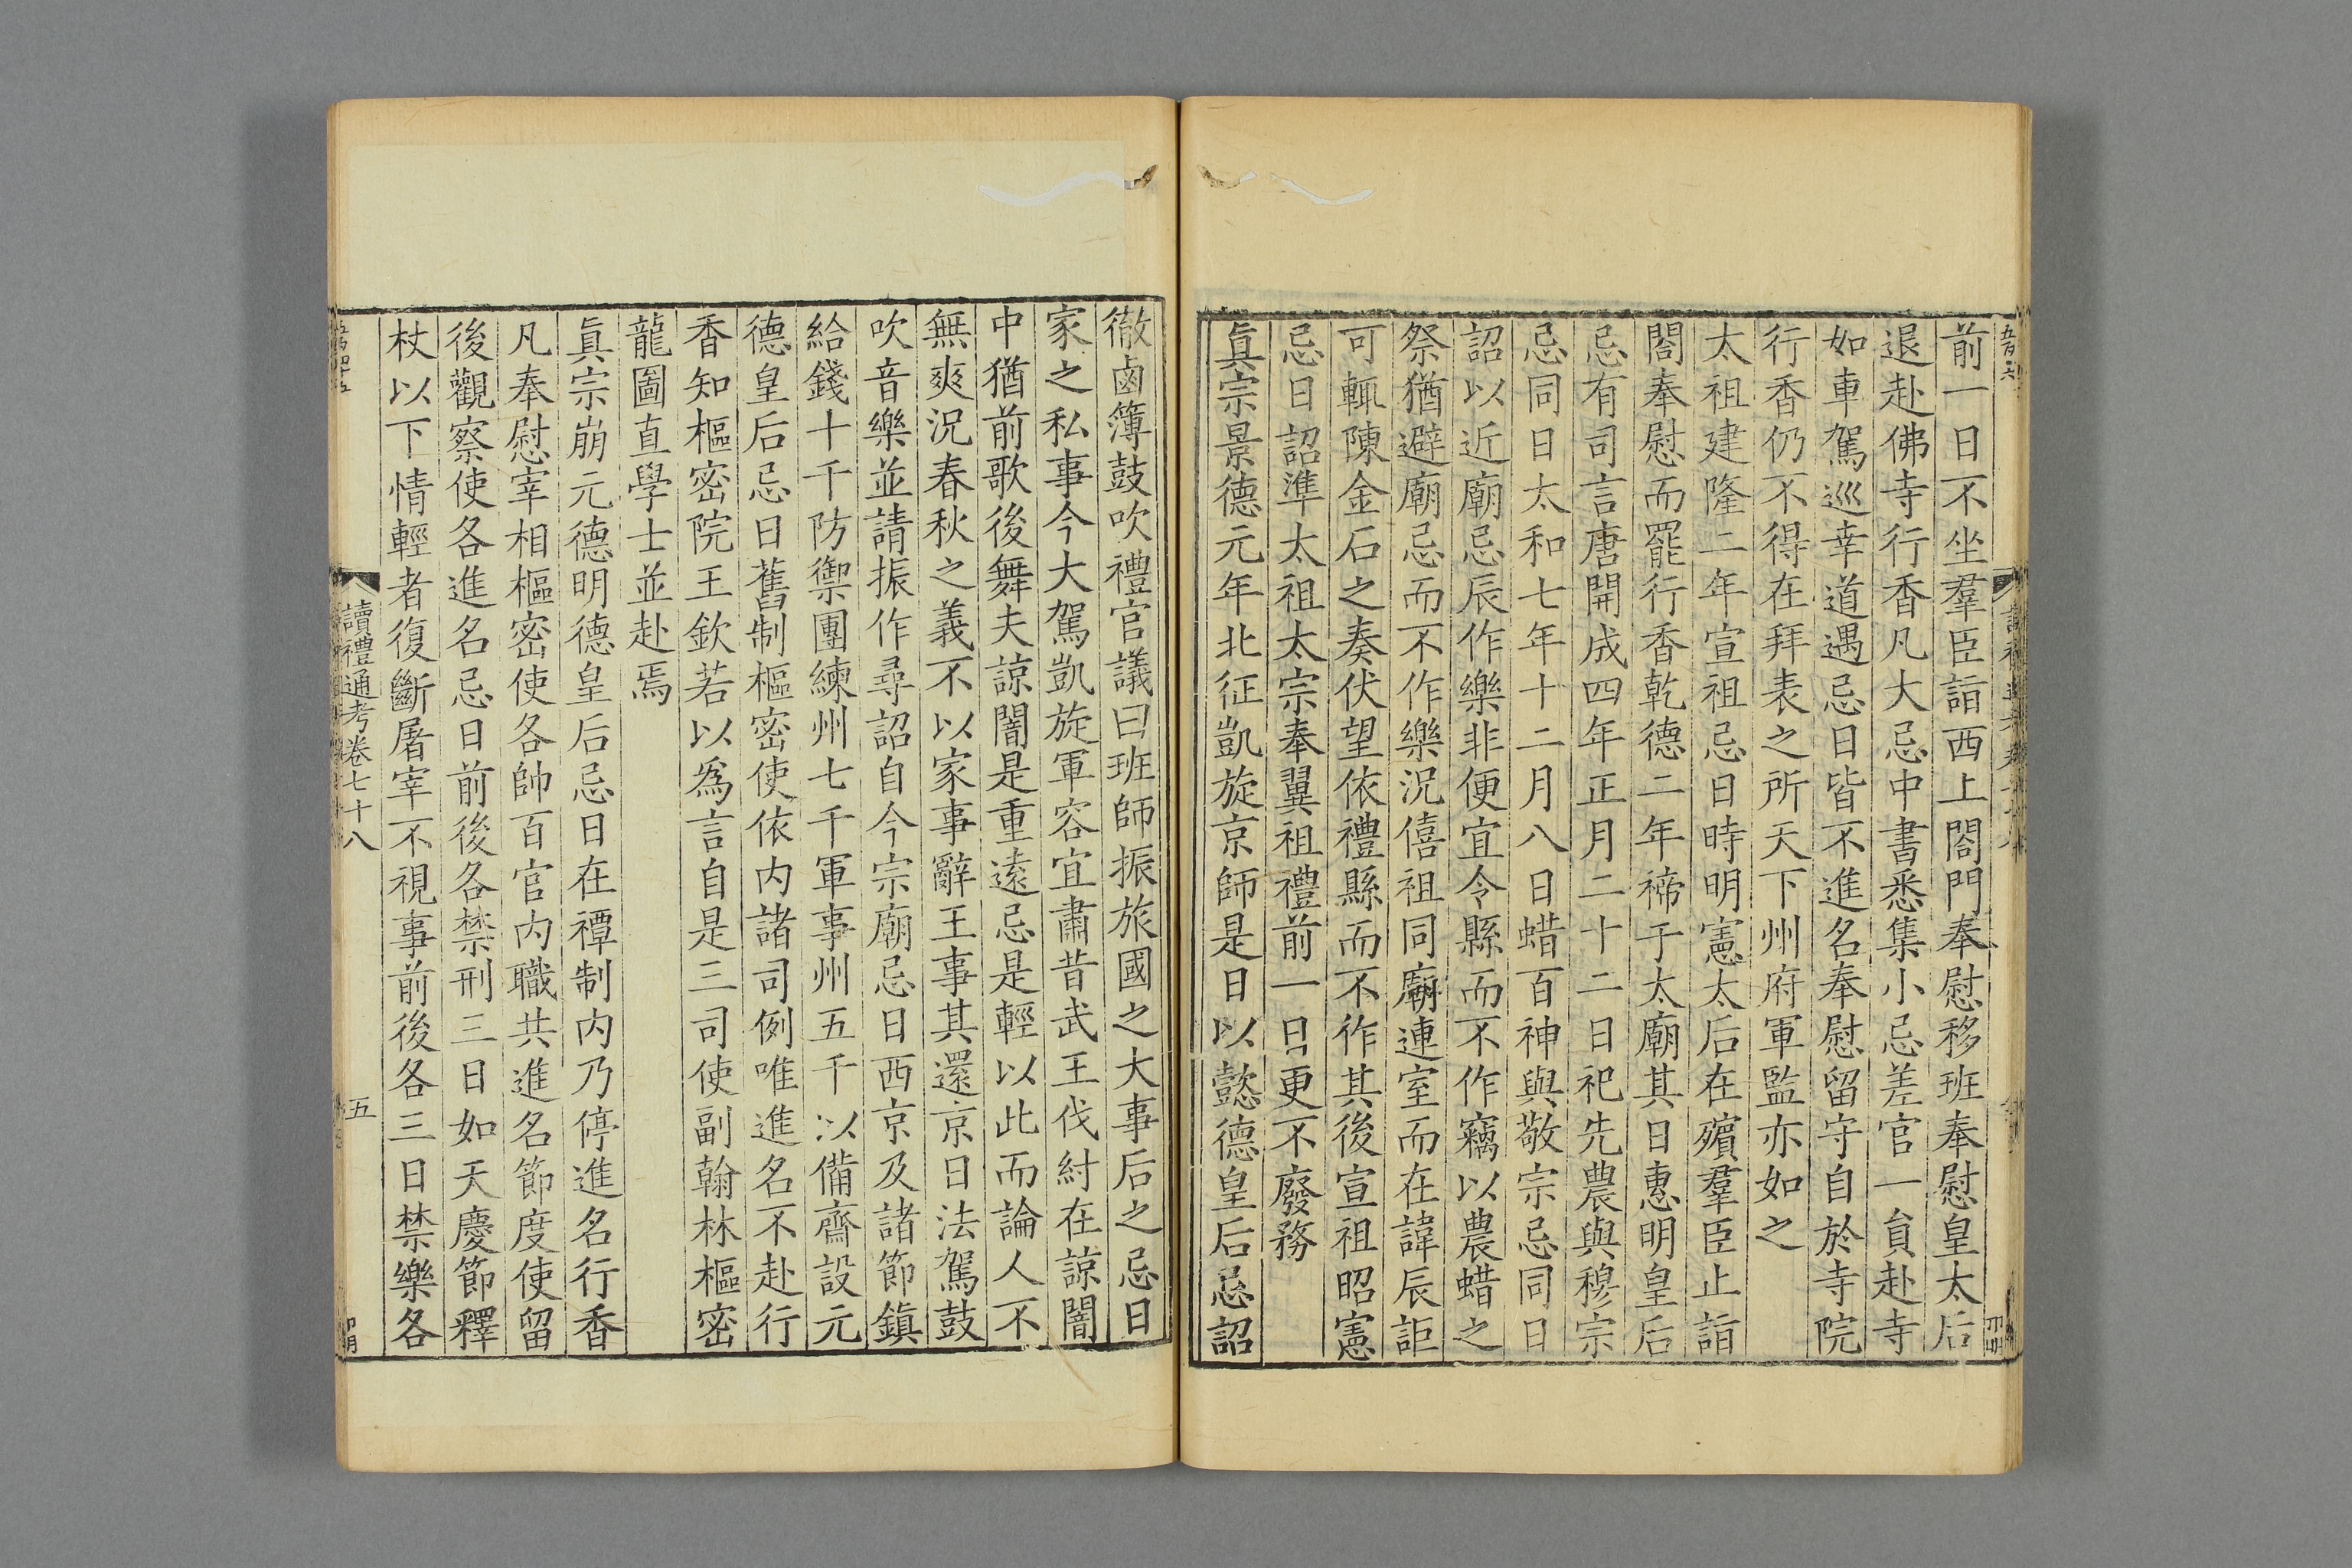 前一日不坐羣臣詣西上閤門奉慰移班奉慰皇太后
退赴佛寺行香凡大忌中書悉集小忌差官一員赴寺
如車駕巡幸道遇忌日皆不進名奉慰留守自於寺院
行香仍不得在拜表之所天下州府軍監亦如之
太祖建隆二年宣祖忌日時明憲太后在殯羣臣止詣
閤奉慰而罷行香乾德二年禘于太廟其日惠明皇后
忌有司言唐開成四年正月二十二日祀先農與穆宗
忌同日太和七年十二月八日蜡百神與敬宗忌同日
詔以近廟忌辰作樂非便宜令縣而不作竊以農蜡之
祭猶避廟忌而不作樂況僖祖同廟連室而在諱辰詎
可輒陳金石之奏伏望依禮縣而不作其後宣祖昭憲
忌日詔準太祖太宗奉翼祖禮前一日更不廢務
眞宗景德元年北征凱旋京師是日以懿德皇后忌詔
徹鹵簿鼓吹禮官議曰班師振旅國之大事后之忌日
家之私事今大駕凱旋軍容宜肅昔武王伐紂在諒闇
中猶前歌後舞夫諒闇是重遠忌是輕以此而論人不
無爽況春秋之義不以家事辭王事其還京日法駕鼓
吹音樂並請振作尋詔自今宗廟忌日西京及諸節鎮
給錢十千防禦團練州七千軍事州五千以備齋設元
德皇后忌日舊制樞密使依内諸司例唯進名不赴行
香知樞密院王欽若以爲言自是三司使副翰林樞密
龍圖直學士並赴焉
眞宗崩元德明德皇后忌日在禫制内乃停進名行香
凡奉慰宰相樞密使各帥百官内職共進名節度使留
後觀察使各進名忌日前後各禁刑三日如天慶節釋
杖以下情輕者復斷屠宰不視事前後各三日禁樂各
讀禮通考卷七十八
五